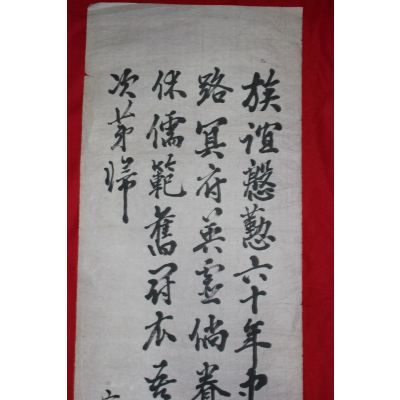 族誼慇懃六十年
路冥府英靈倘眷
休儒範舊冠衣吾
次第歸